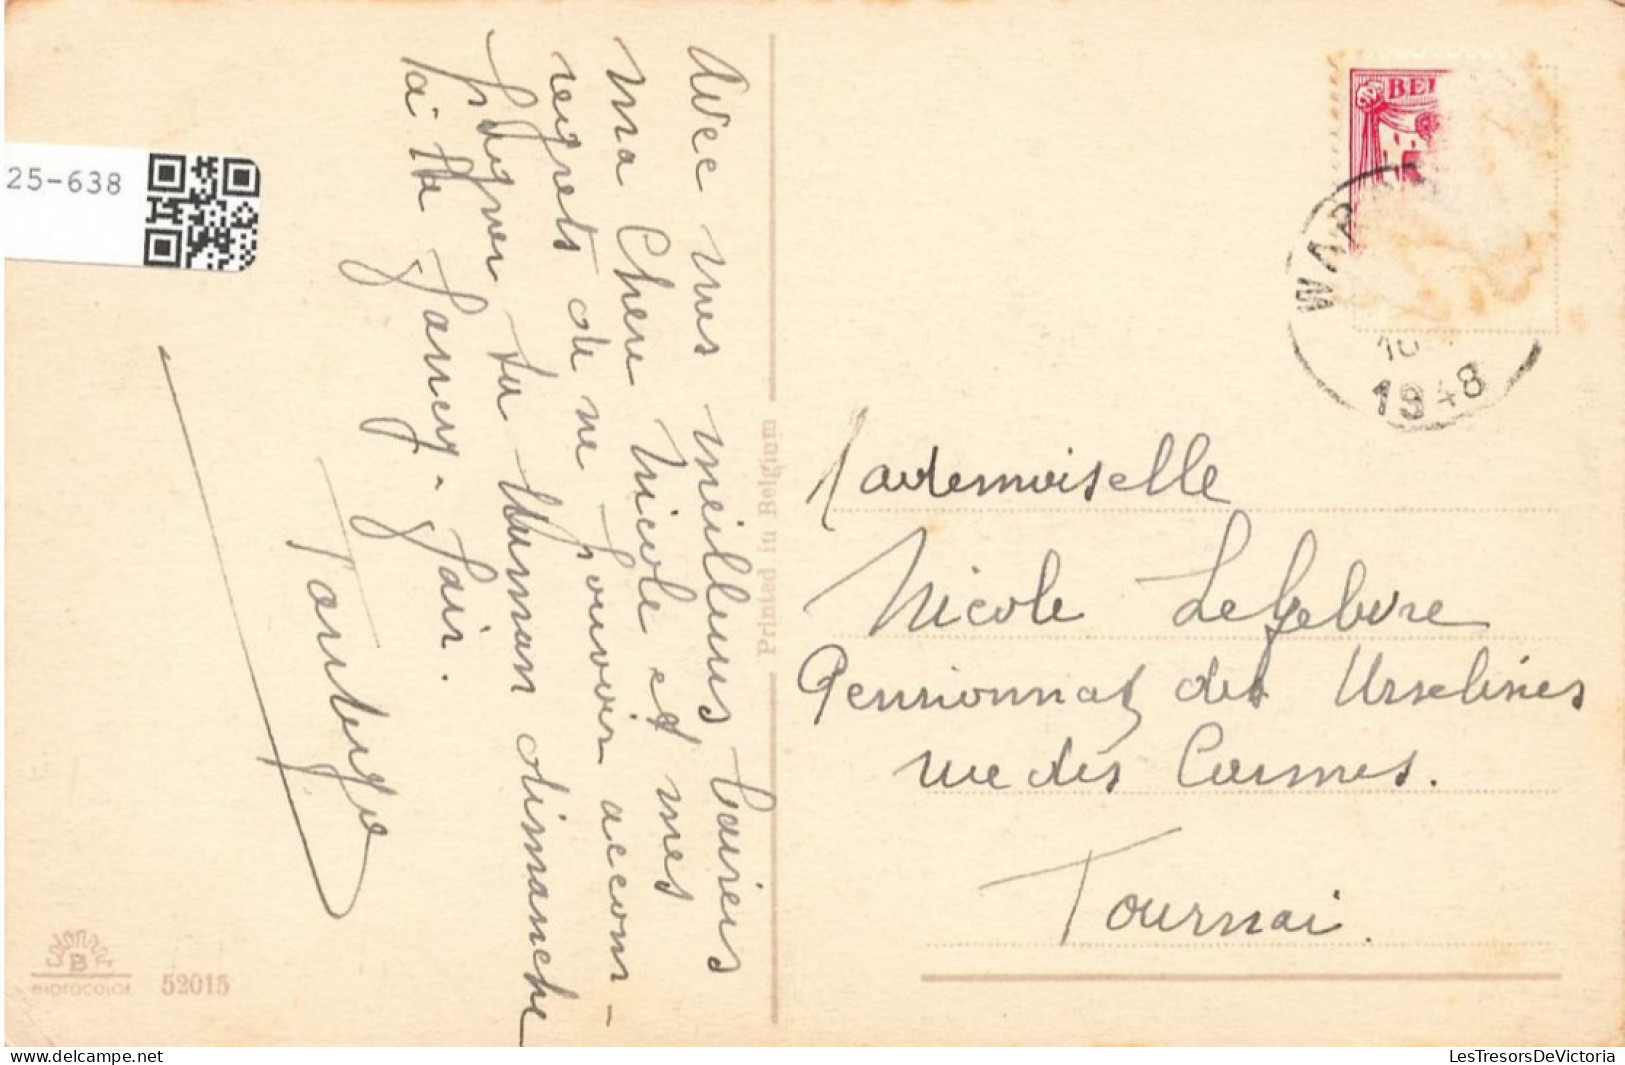 25-638
Avec mes meilleurs baisers
ma Chère Nicole et mes
regrets de ne pouvoir accom-
pagner ta Maman dimanche
à la
Printed in Belgium
52015
BEL
10
1948
Mademoiselle
Nicole Lefebvre
Pensionnat des Ursulines
rue des Carmes.
Tournai.
LesTresorsDeVictoria
delcampe.net